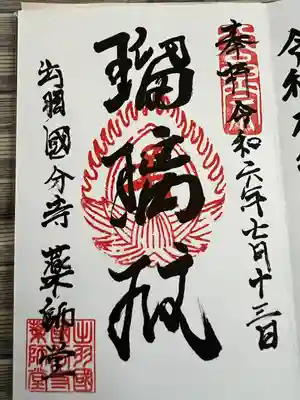 令和
奉拝 令和六年七月十三日
瑠璃殿
出羽國分寺 薬師堂
出羽國
薬師堂